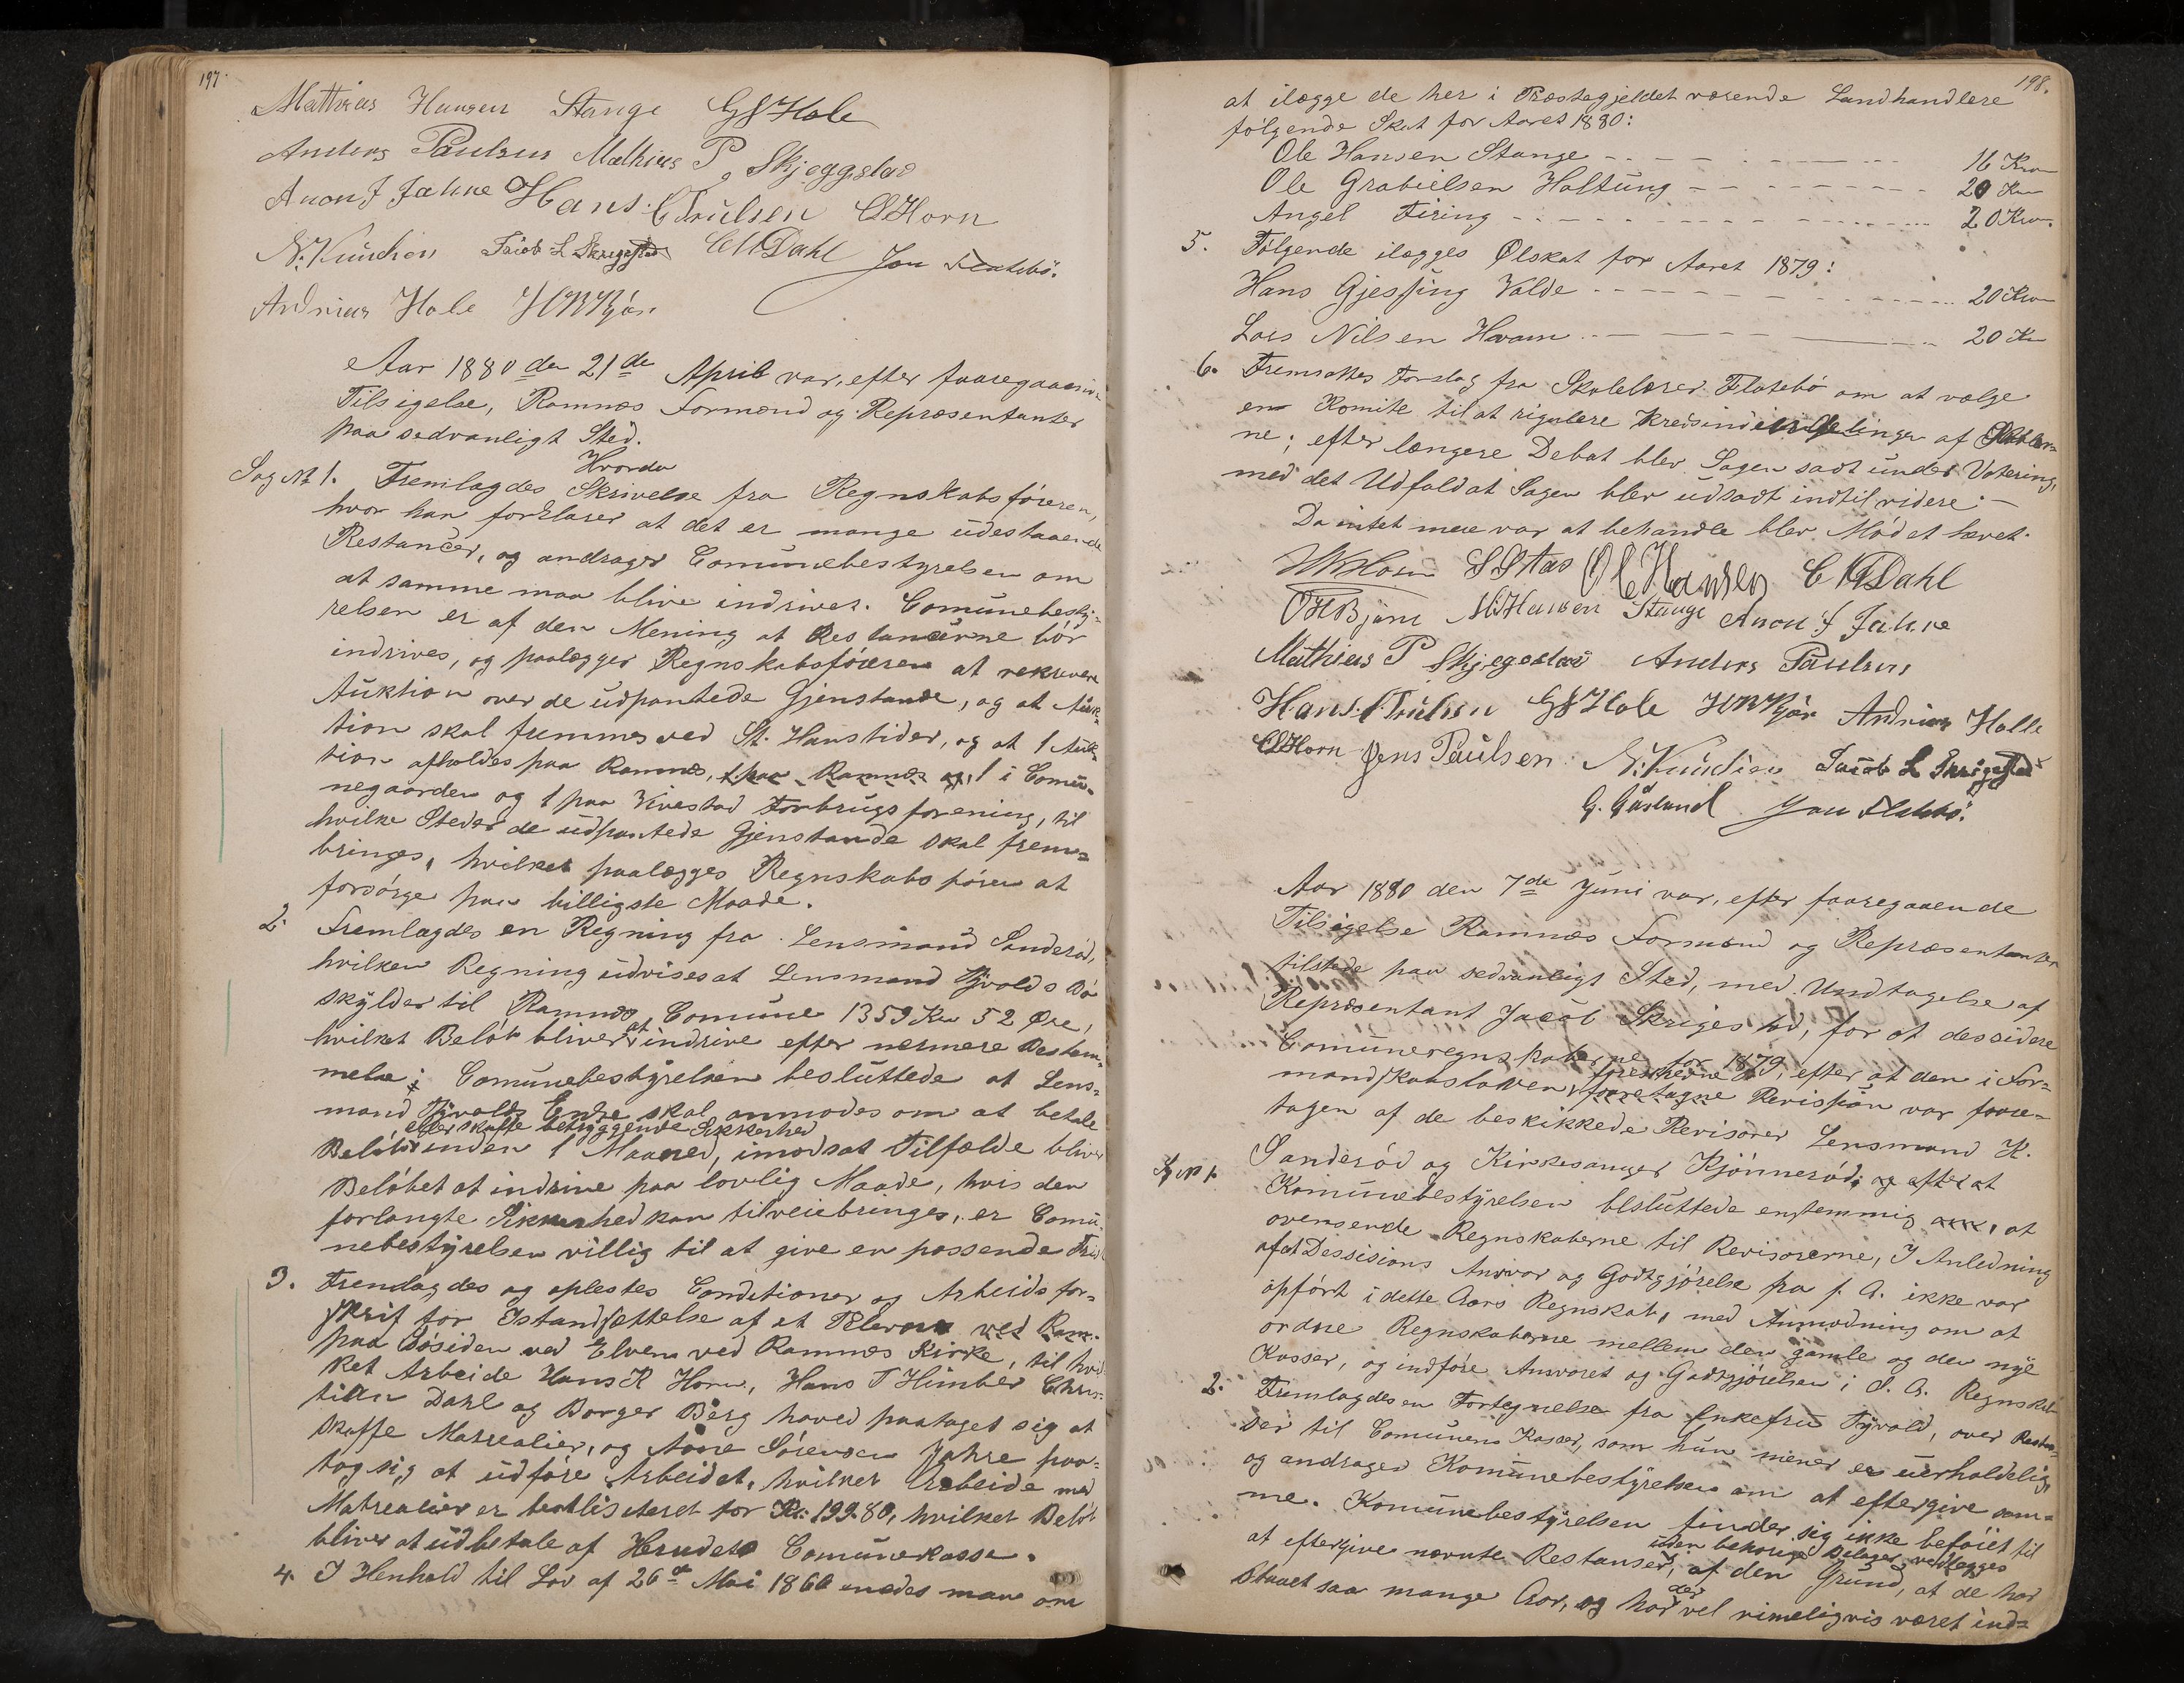 197.
Mathias Hansen Stange GSHole
Anders Paulsen Mathias P Skjeggstad
Anon J Jahre Hans C Trulsen CHorn
N. Knudsen Jacob L Skrigestad CMDahl Jon Flatebö.
Andreas Hole
Aar 1880 den 21de April var, efter foaregaaen
Tilsigelse, Ramnæs Formænd og Repræsentanter
paa sedvanligt Sted.
Hvorda
Sag № 1. Fremlagdes Skrivelse fra Regnskabsføreren,
hvor han forklarer at det er mange udestaaende
Restancer, og andrager Comunebestyrelsen om
at samme maa blive indrivet. Comunebesty=
relsen er af den Mening at Restancerne bør
indrives, og paalægger Regnskabsføreren at rekvirere
Auktion over de udpantede Gjenstande, og at Auk=
tion skal fremmes ved St. Hanstider, og at 1 Auk=
tion afholdes paa Ramnæs, 1 paa Ramnæs og 1 i Comu=
negaarden og 1 paa Vivestad Forbrugsforening, til
hvilke Steder de udpantede Gjenstande skal frem=
bringes, hvilket paalægges Regnskabsføren at
forsørge paa billigste Maade.
2. Fremlagdes en Regning fra Lensmand Sanderød,
hvilken Regning udvises at Lensmand Tyvolds Bo
skylder til Ramnæs Comune 1359 Kr 52 Øre,
hvilket Beløb bliver at indrive efter nærmere Bestem=
melse; Comunebestyrelsen besluttede at Lens=
mand Tyvolds Enke skal anmodes om at betale
eller skaffe betryggende Sikkerhed
Beløbet inden 1 Maaned, imodsat Tilfælde bliver
Beløbet at indrive paa lovlig Maade, hvis den
forlangte Sikkerhed kan tilveiebringes, er Comu=
nebestyrelsen villig til at give en passende Frist
3. Fremlagdes og oplestes Conditioner og Arbeidsfor=
skrif for Istandsættelse af et Elevern ved Ram.
paa Bøsiden ved Elven ved Ramnæs Kirke, til hvil
ket Arbeide Hans K Horn, Hans T Himber Chris=
tian Dahl og Borger Berg haved paataget sig at
skaffe Matrealier, og Anne Sørensen Jahre paa=
tog sig at udføre Arbeidet, hvilket Arbeide med
Matrealier er for Kr: 199.80, hvilket Beløb
bliver at udbetale af Herudets Comunekasse.
4. I Henhold til Lov af 26de Mai 1866 enedes man om
198.
at ilægge de her i Præstegjeldet værende Landhandlere
følgende Skat for Aaret 1880:
Ole Hansen Stange - - - - - 16 Kro
Ole Grabielsen Haltung - - - - - 20 Kr
Angel Firing - - - - - 20 Kro.
5. Følgende ilægges Ølskat for Aaret 1879:
Hans Gjessing Valde - - - - - 20 Kro
Lars Nilsen Hvam - - - - - 20 Kr
6. Fremsattes Forslag fra Skolelærer Flatebø om at vælge
en Komite til at rigulere Kredsinddelinger af Skoler=
ne; efter længere Debat blev Sagen sadt under Votering,
med det Udfald at Sagen blev udsadt indtil videre. -
Da intet mere var at behandle blev Mødet hævet.
HKHorn Ole Hansen CMDahl
OHBjørn M. Hansen Stange Anon J Jahre
Mathias P Skjegestad Anders Paulsen
Hans C Trulsen GSHole Andreas Holle
CHorn Jens Paulsen N. Knudsen Jacob L Skrigestad
G. Gåsland Jon Flatebö.
Aar 1880 den 7de Juni var, efter foaregaaende
Tilsigelse Ramnæs Formænd og Repræsentanter
tilstede paa sedvanligt Sted, med Undtagelse af
Repræsentant Jacob Skrigestad, for at dessidere
Comuneregnskaberne for 1879, efter at den i For=
foreskrevne
mandskabsloven foretagne Revission var foare=
tagen af de beskikkede Revisorer Lensmand K.
Sanderød og Kirkesanger Kjønnerød; og efter at
Sag № 1. Komunebestyrelsen besluttede enstemmig, at
oversende Regnskaberne til Revisorerne, I Anledning
af at Dessisions Ansvar og Godtgjørelse fra f. A. ikke var
opført i dette Aars Regnskab, med Anmodning om at
ordne Regnskaberne mellem den gamle og den nye
Kasser, og indføre Ansvaret og Godtgjørelsen i d. A. Regnskab
2. Fremlagdes en Fortegnelse fra Enkefru Tyvold, over Restan=
ser til Comunens Kasse, som hun mener er uerholdelig,
og andrager Komunebestyrelsen om at eftergive sam=
me. Komunebestyrelsen finder sig ikke beføiet til
uden behørige Bilager vedlægges
at eftergive nævnte Restanser, af den Grund, at de har
staaet saa mange Aar, og har der vel rimeligvis været ind=